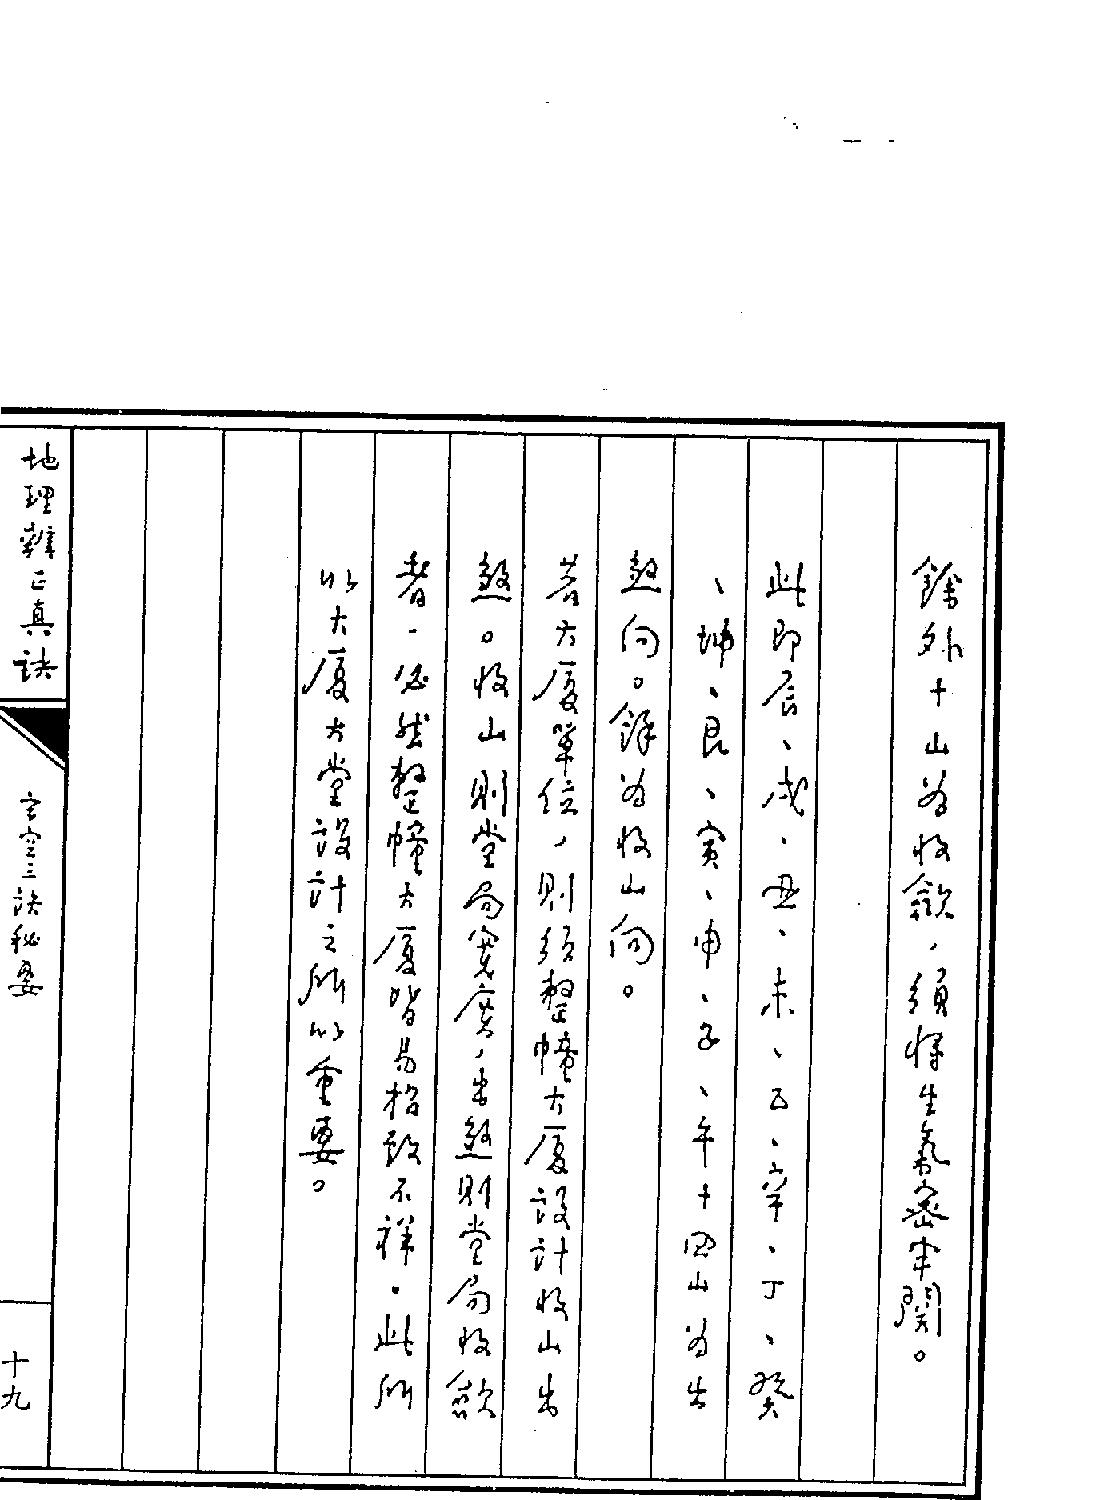 餘外十山為收斂，須將生氣密牢關。
此即辰、戌、丑、未、乙、辛、丁、癸
、坤、艮、寅、申、子、午十四山為出
煞向。餘為收山向。
若大廈單位，則須整幢大廈設計收山出
煞。收山則堂局寬廣，出煞則堂局收斂
者，必然整幢大廈皆易招致不祥。此所
以大廈大堂設計之所以重要。
地理辨正真訣
玄空三訣秘要
十九